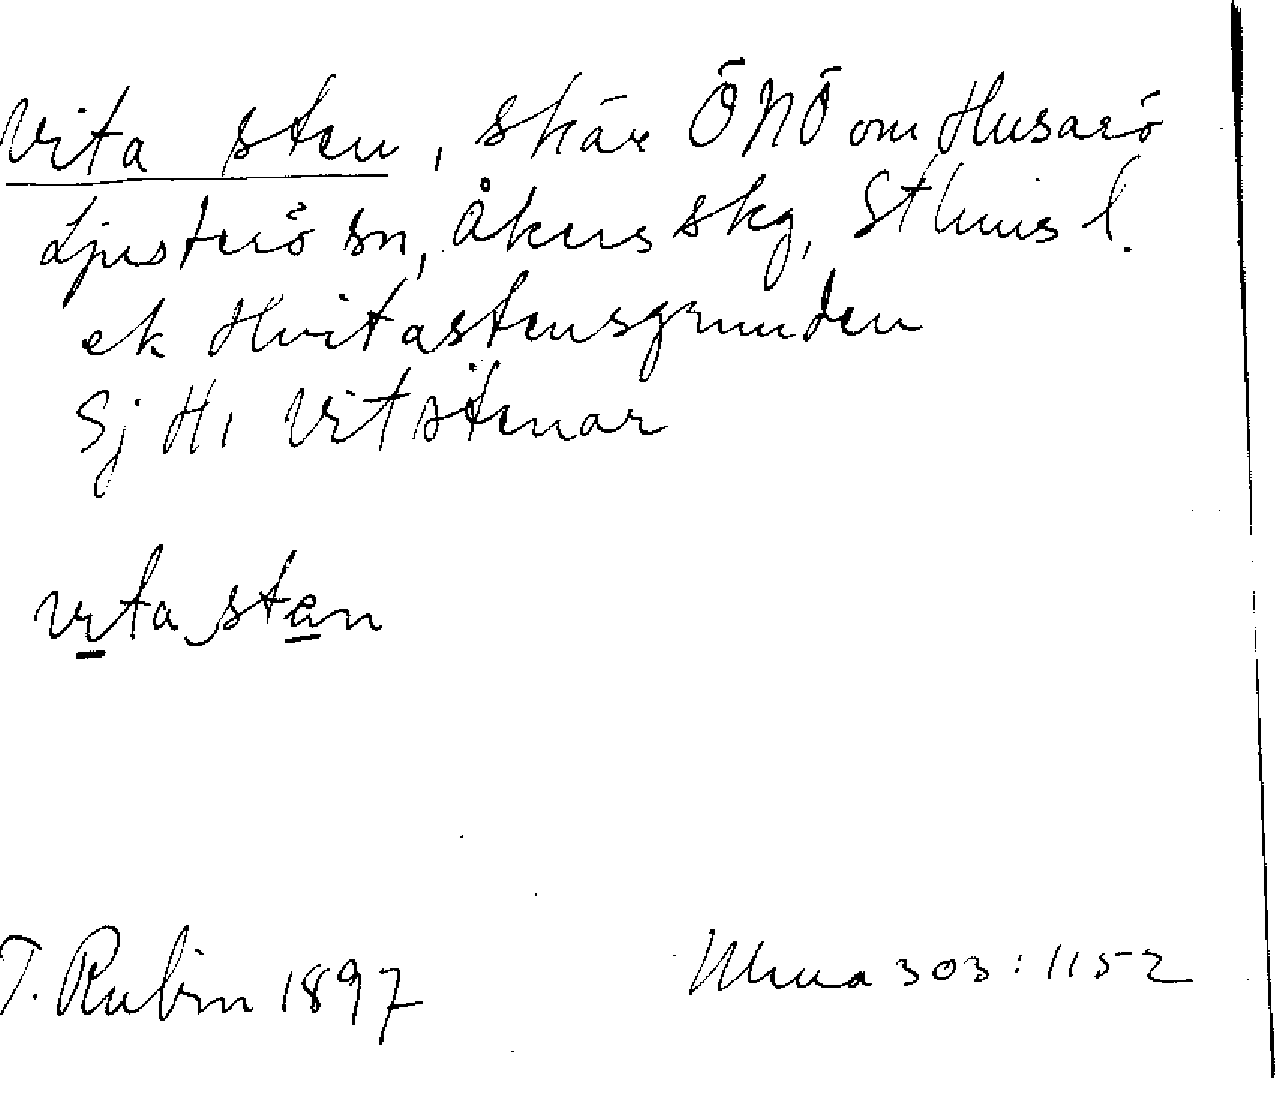 Vita sten, skär ÖNÖ om Husarö
Ljusterö sn, Åkers skg, Sthms l.
ek Hvitastensgrunden
Sj H1 Vitstenar
vita stan
T. Rubin 1897
303:1152